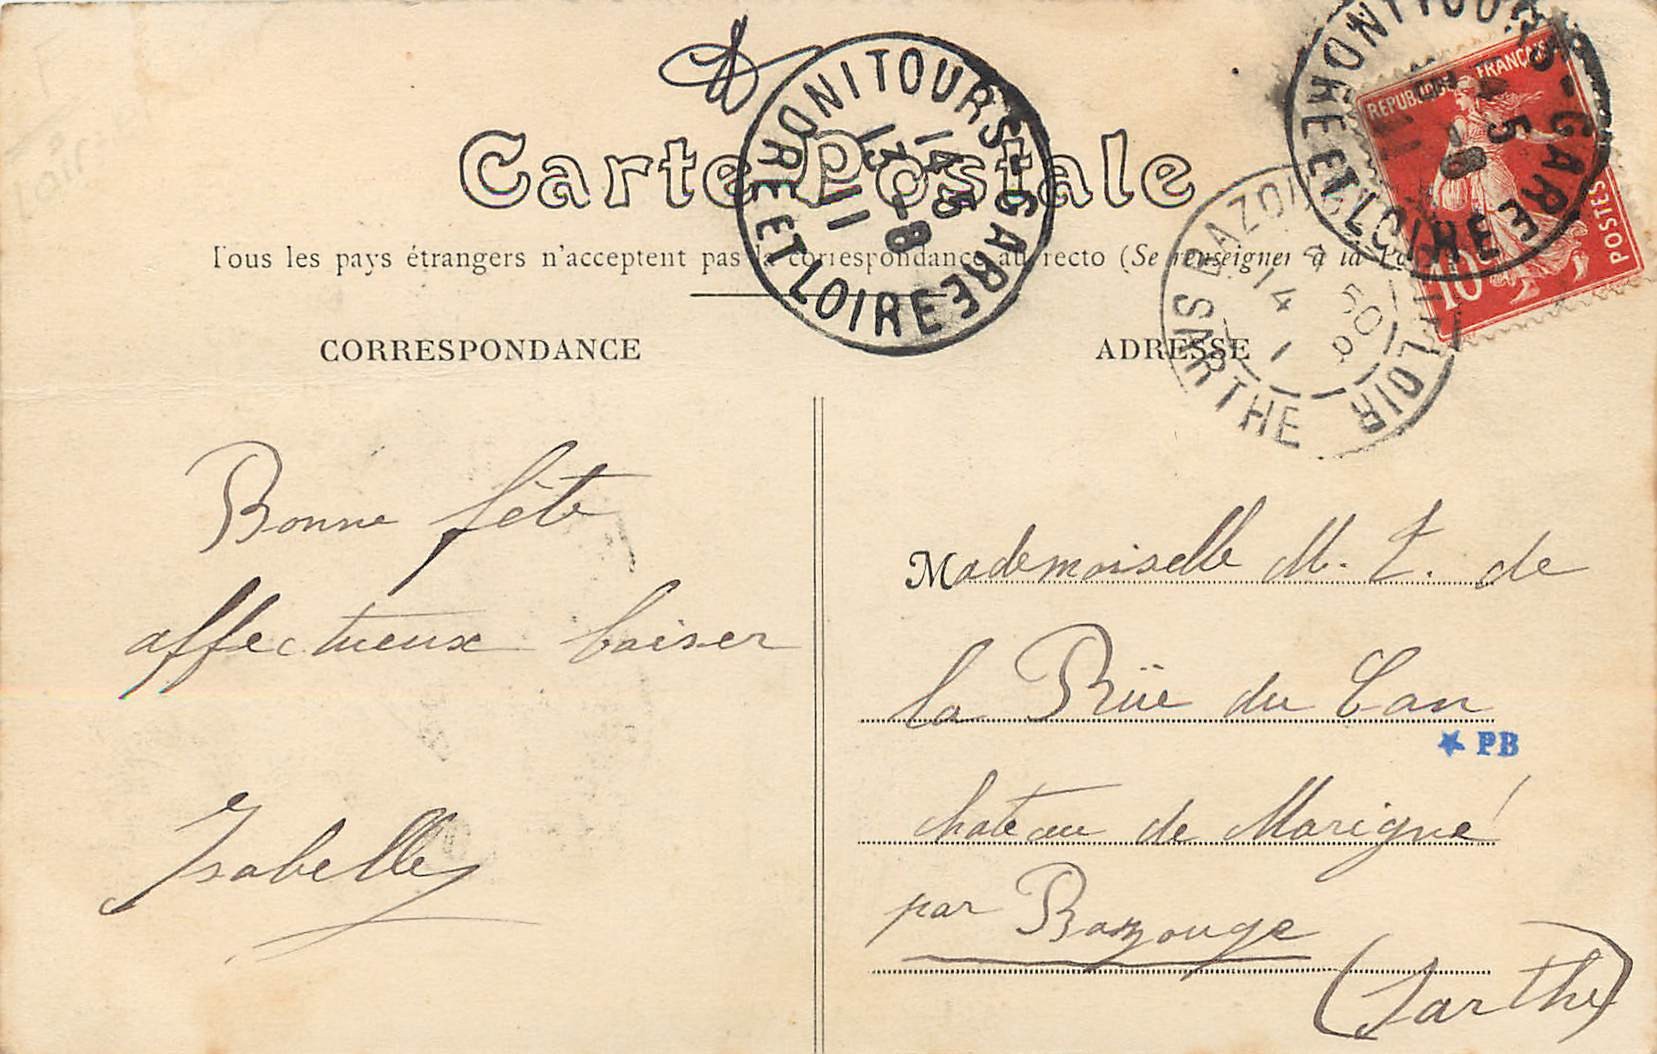 Carte Postale
Tous les pays étrangers n'acceptent pas la correspondance au recto (Se renseigner à la
CORRESPONDANCE
ADRESSE
TOURS-GARE
INDRE ET LOIRE
1445
13-8
11
TOURS-GARE
INDRE ET LOIRE
45
-8
11
REPUBLIQUE FRANÇAISE
POSTES
10
LOIR
SARTHE
14
Bonne fête
affectueux baiser
Isabelle
Mademoiselle M. T. de
la Rüe du Can
chateau de Marigné
par Bazouge
(Sarthe)
PB